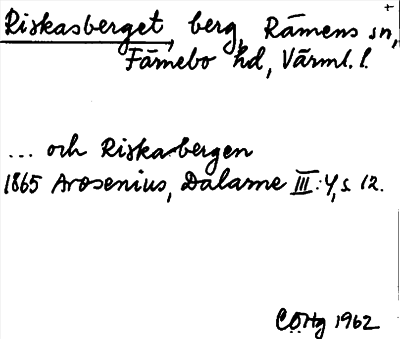 Riskasberget, berg, Rämens sn,
Färnebo hd, Värml. l.
... och Riskabergen
1865 Arosenius, Dalarne III:4, s. 12.
CÖHg 1962